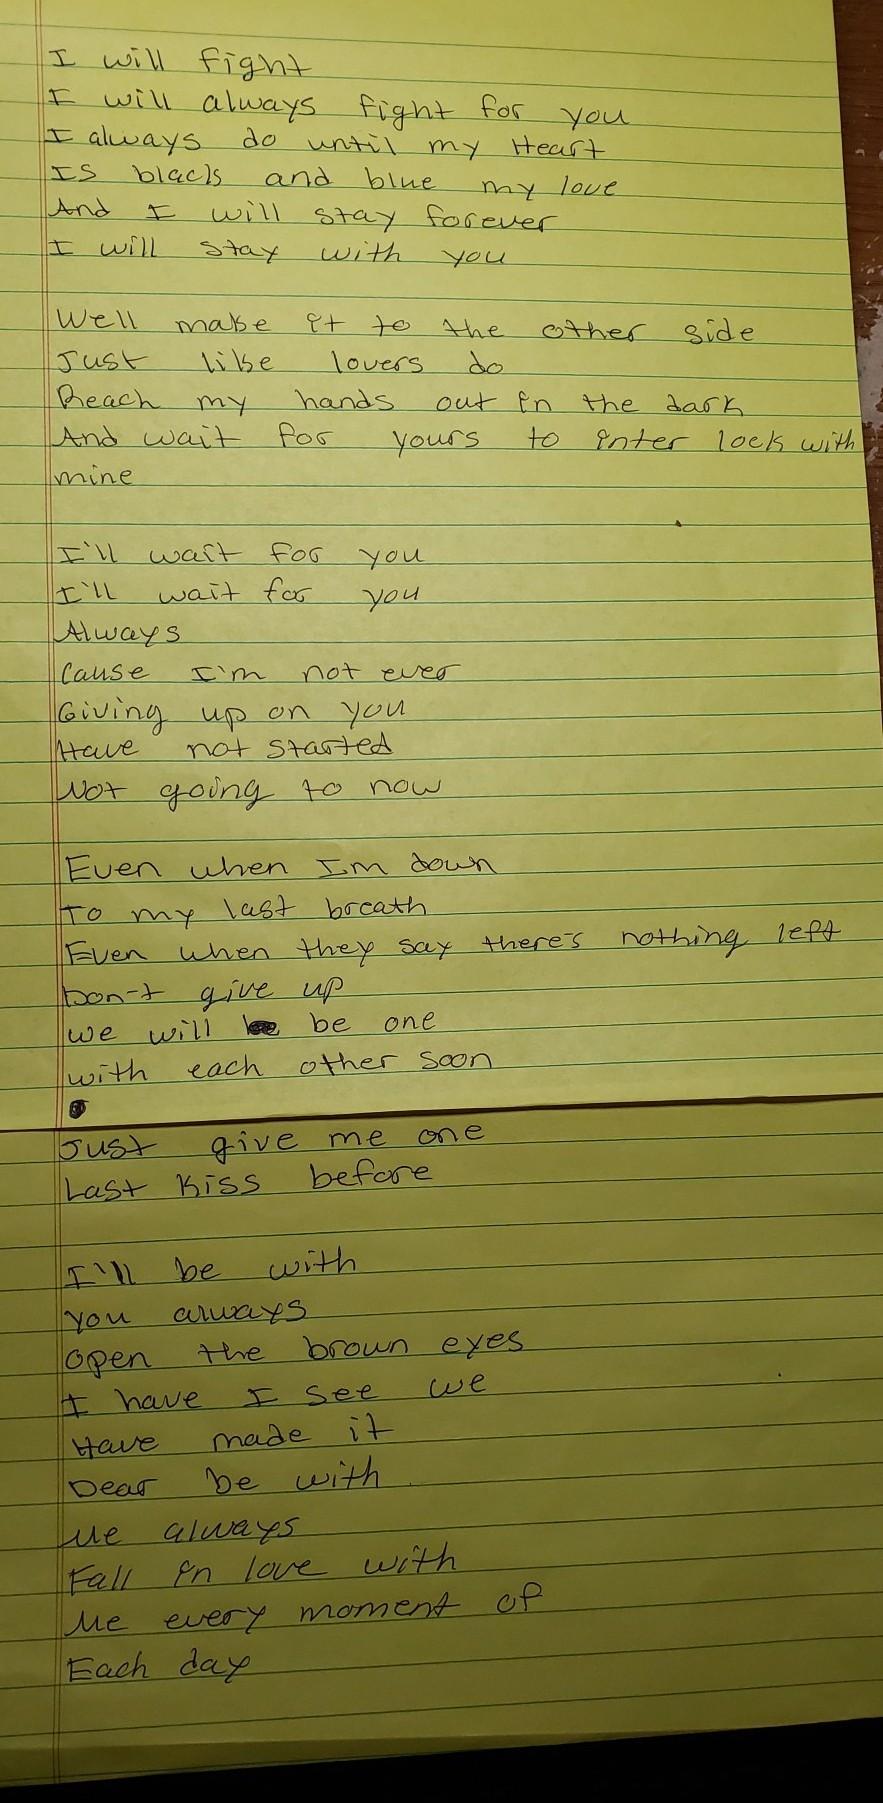 I will fight
I will always fight for you
I always do until my Heart
Is black and blue my love
And I will stay forever
I will stay with you
Well make it to the other side
Just like lovers do
Reach my hands out in the dark
And wait for yours to inter lock with
mine
I'll wait for you
I'll wait for you
Always
Cause I'm not ever
Giving up on you
Have not started
Not going to now
Even when Im down
To my last breath
Even when they say there's nothing left
Don-t give up
we will be one
with each other soon
Just give me one
Last Kiss before
I'll be with
you always
open the brown eyes
I have I see we
Have made it
Dear be with
Me always
Fall in love with
Me every moment of
Each day